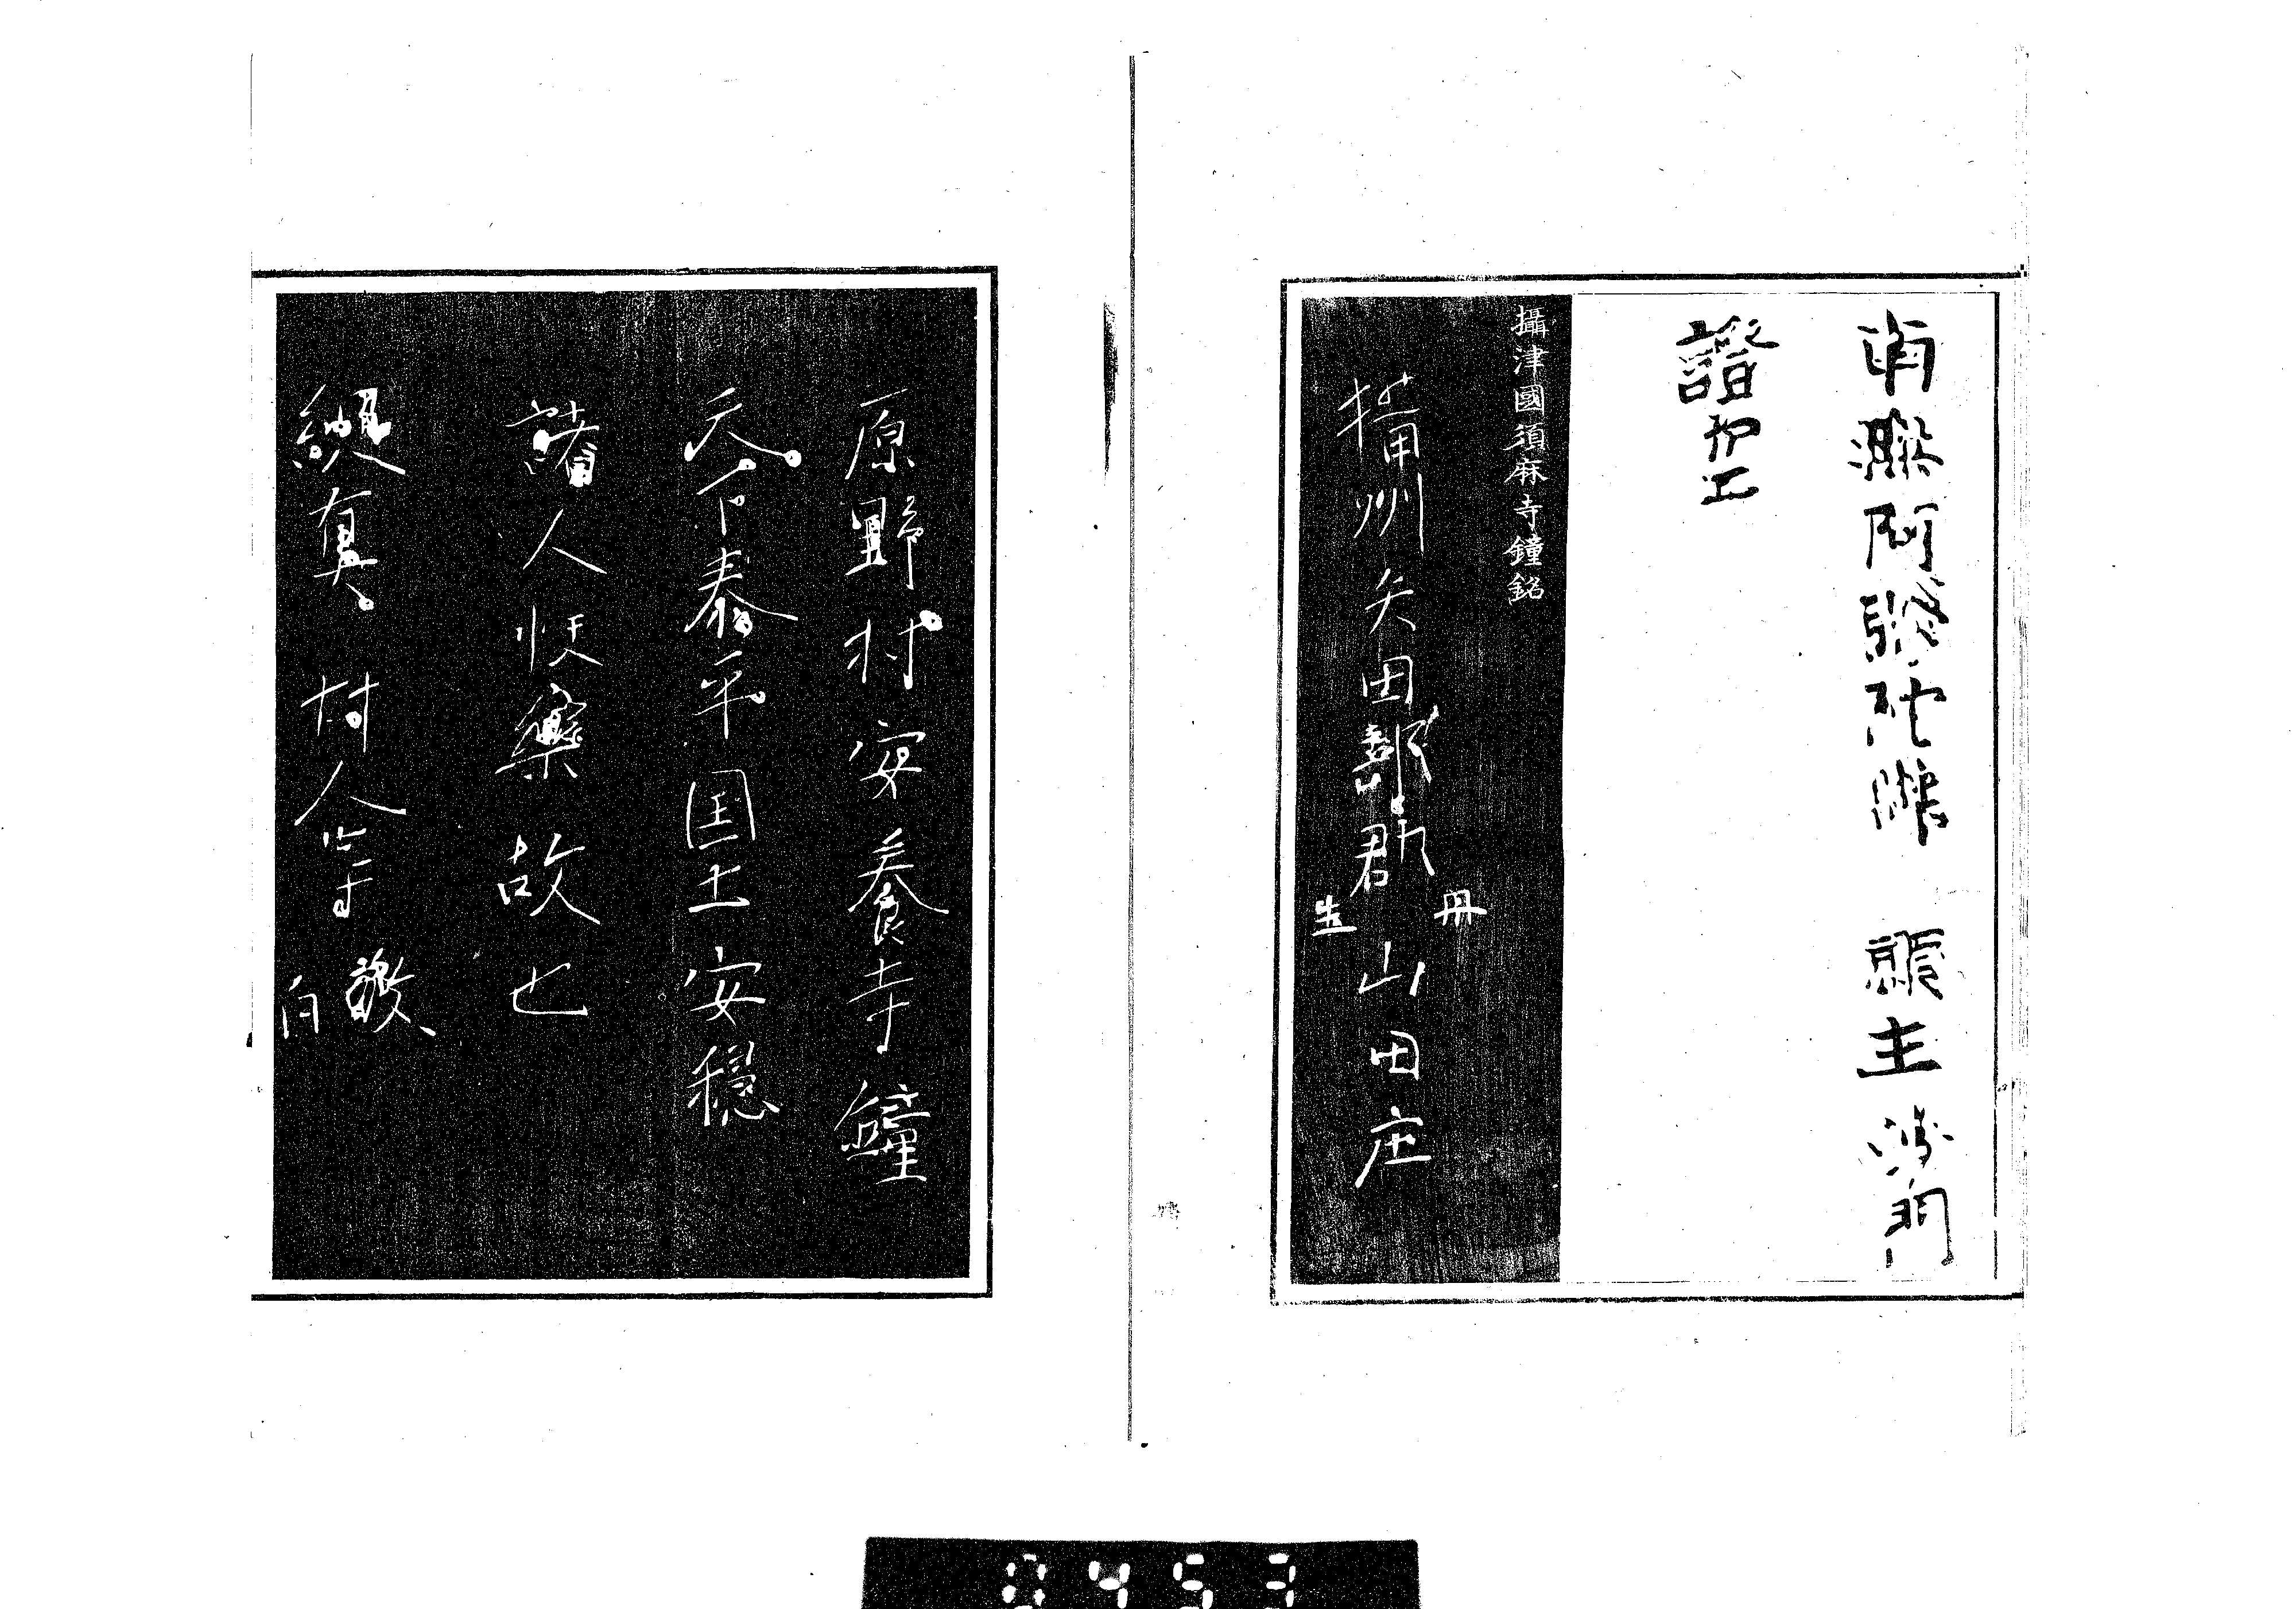 南無阿彌陀佛 願主沙門
證
攝津國須麻寺鐘銘
攝州矢田部郡丹生山田庄
原野村安養寺鐘
天下泰平国土安穏
諸人快樂故也
村人等敬白
0453